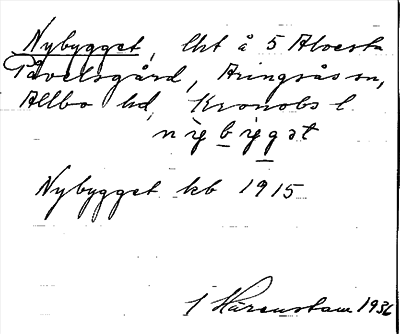 Nybygget, lht å 5 Alvesta
Påvelsgård, Aringsås sn,
Allbo hd, Kronobs l.
nybygat
Nybygget kb 1915
J Härenstam 1936